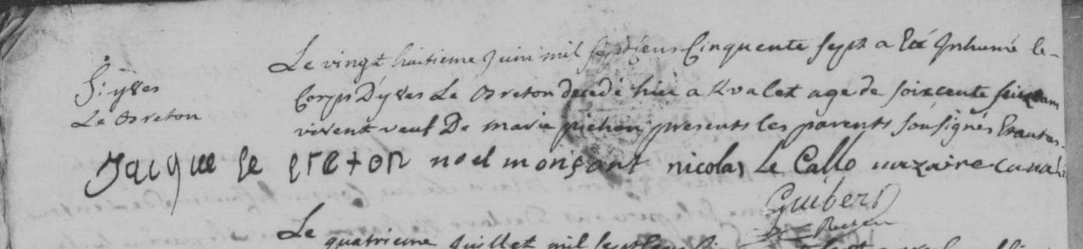 Le vingt huitieme Juin mil sept cens Cinquente sept a Eté Jnhumé le
S: yves
Le Breton
Corps D'yves Le Breton decedé hier a Kvalet age de soixcente seize ans
vivent veuf De marie pichon presents les parents sousignés Et autres.
Jacque le breton noel monfort nicolas Le Callo nazaire
Guibert
Le quatrieme Juillet mil sept cens